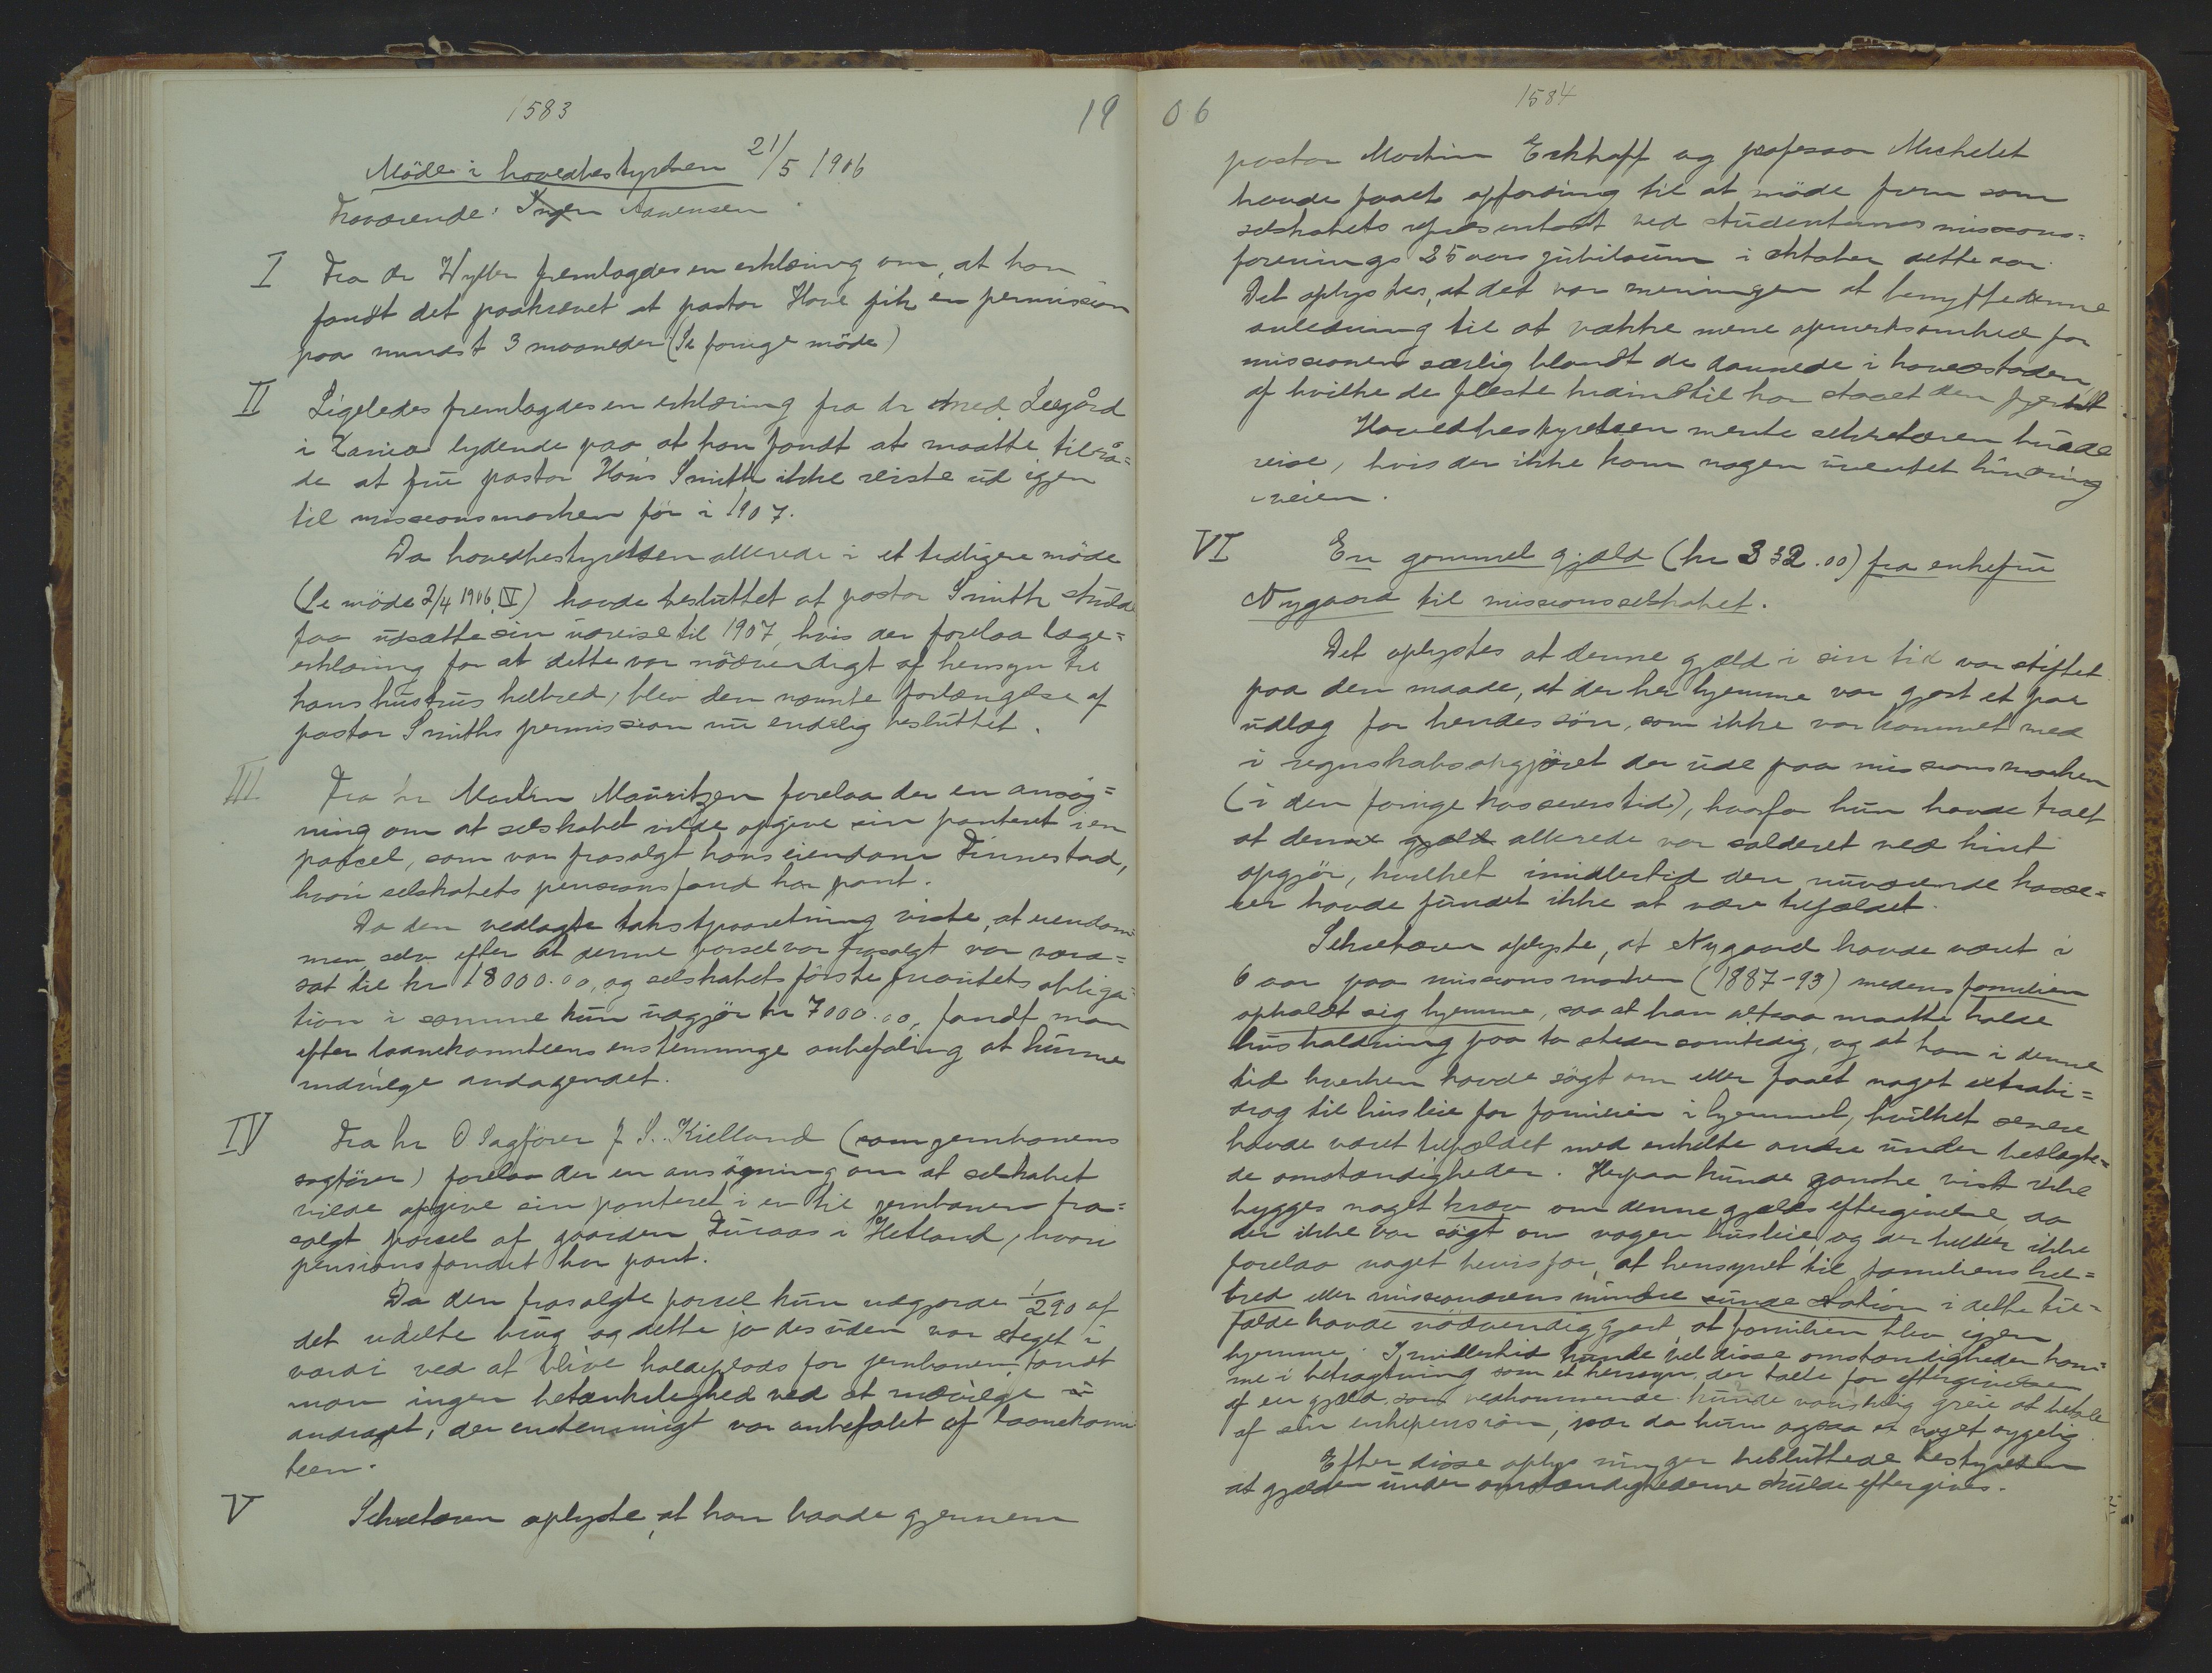 1583
19
Möde i hovedbestyrelsen 21/5 1906
Fraværende: Ingen Aanensen.
I Fra dr Wyller fremlagdes en erklæring om, at han
fandt det paakrævet at pastor Hove fik en permission
paa mindst 3 maaneder (Se forrige möde)
II Ligeledes fremlagdes en erklæring fra dr med Leegård
i Xania lydende paa at han fandt at maatte tilrå=
de at frue pastor Höis Smith ikke reiste ud igjen
til missionsmarken för i 1907.
Da hovedbestyrelsen allerede i et tidligere möde
(Se möde 2/4 1906, IV) havde besluttet at pastor Smith skulde
faa udsætte sin udreise til 1907, hvis der forelaa læge=
erklæring for at dette var nödvendigt af hensyn til
hans hustrus helbred, blev den nævnte forlængelse af
pastor Smiths permission nu endelig besluttet.
III Fra hr Martin Mauritzen forelaa der en ansög=
ning om at selskabet vilde opgive sin panteret i en
parcel, som var frasolgt hans eiendom Finnestad,
hvori selskabets pensionsfond har pant.
Da den vedlagte takstforretning viste, at eiendom=
men, selv efter at denne parsel var frasolgt var værd=
sat til kr 18000.00, og selskabets förste prioritets obliga=
tion i samme kun udgjör kr 7000.00, fandt man
efter laanekomiteens enstemmige anbefaling at kunne
indvilge andragendet.
IV Fra hr O Sagförer J. S. Kielland (som jernbanens
sagförer) forelaa der en ansögning om at selskabet
vilde opgive sin panteret i en til jernbanen fra=
solgt parsel af gaarden Duraas i Hetland, hvori
pensionsfondet har pant.
Da den frasolgte parsel kun udgjorde 1/290 af
det udelte brug og dette jo desuden var steget i
værdi ved at blive holdeplads for jernbanen, fandt
man ingen betænkelighed ved at indvilge i
andraget, der enstemmigt var anbefalet af laanekomi
teen.
V Sekretæren oplyste, at han baade gjennem
06
1584
pastor Martin Eckhoff og professor Michelet
havde faaet opfordring til at möde frem som
selskabets repræsentant ved studenternes missions=
forenings 25 aars jubilæum i oktober dette aar.
Det oplystes, at det var meningen at benytte denne
anledning til at vække mere opmerksomhed for
missionen særlig blandt de dannede i hovedstaden,
af hvilke de fleste hidindtil har staaet den fjernt
Hovedbestyrelsen mente sekretæren burde
reise, hvis der ikke kom nogen uventet hindring
i veien.
VI En gammel gjæld (kr 332.00) fra enkefru
Nygaard til missionsselskabet.
Det oplystes at denne gjæld i sin tid var stiftet
paa den maade, at der her hjemme var gjort et par
udlæg for hendes sön, som ikke var kommet med
i regnskabsopgjöret der ude paa missionsmarken
(i den forrige kasserers tid), hvorfor hun havde troet
at denne gjæld allerede var salderet ved hint
opgjör, hvilket imidlertid den nuværende kasse=
rer havde fundet ikke at være tilfældet.
Sekretæren oplyste, at Nygaard havde været i
6 aar paa missionsmarken (1887-93) medens familien
opholdt sig hjemme, saa at han altsaa maatte holde
husholdning paa to steder samtidig, og at han i denne
tid hverken havde sögt om eller faaet noget extrabi=
drag til husleie for familien i hjemmet, hvilket senere
havde været tilfældet med enkelte andre under beslægte=
de omstændigheder. Herpaa kunde ganske vist ikke
bygges noget krav om denne gjælds eftergivelse, da
der ikke var sögt om nogen husleie, og der heller ikke
forelaa noget bevis for, at hensynet til familiens hel=
bred eller missionærens mindre sunde station i dette til=
fælde havde nödvendiggjort, at familien blev igjen
hjemme. Imidlertid kunde vel disse omstændigheder kom=
me i betragtning som et hensyn, der talte for eftergivelsen
af en gjæld, som vedkommende kunde vanskelig greie at betale
af sin enkepension, især da hun ogsaa er noget sygelig.
Efter disse oplysninger besluttede bestyrelsen
at gjælden under omstændighederne skulde eftergives.